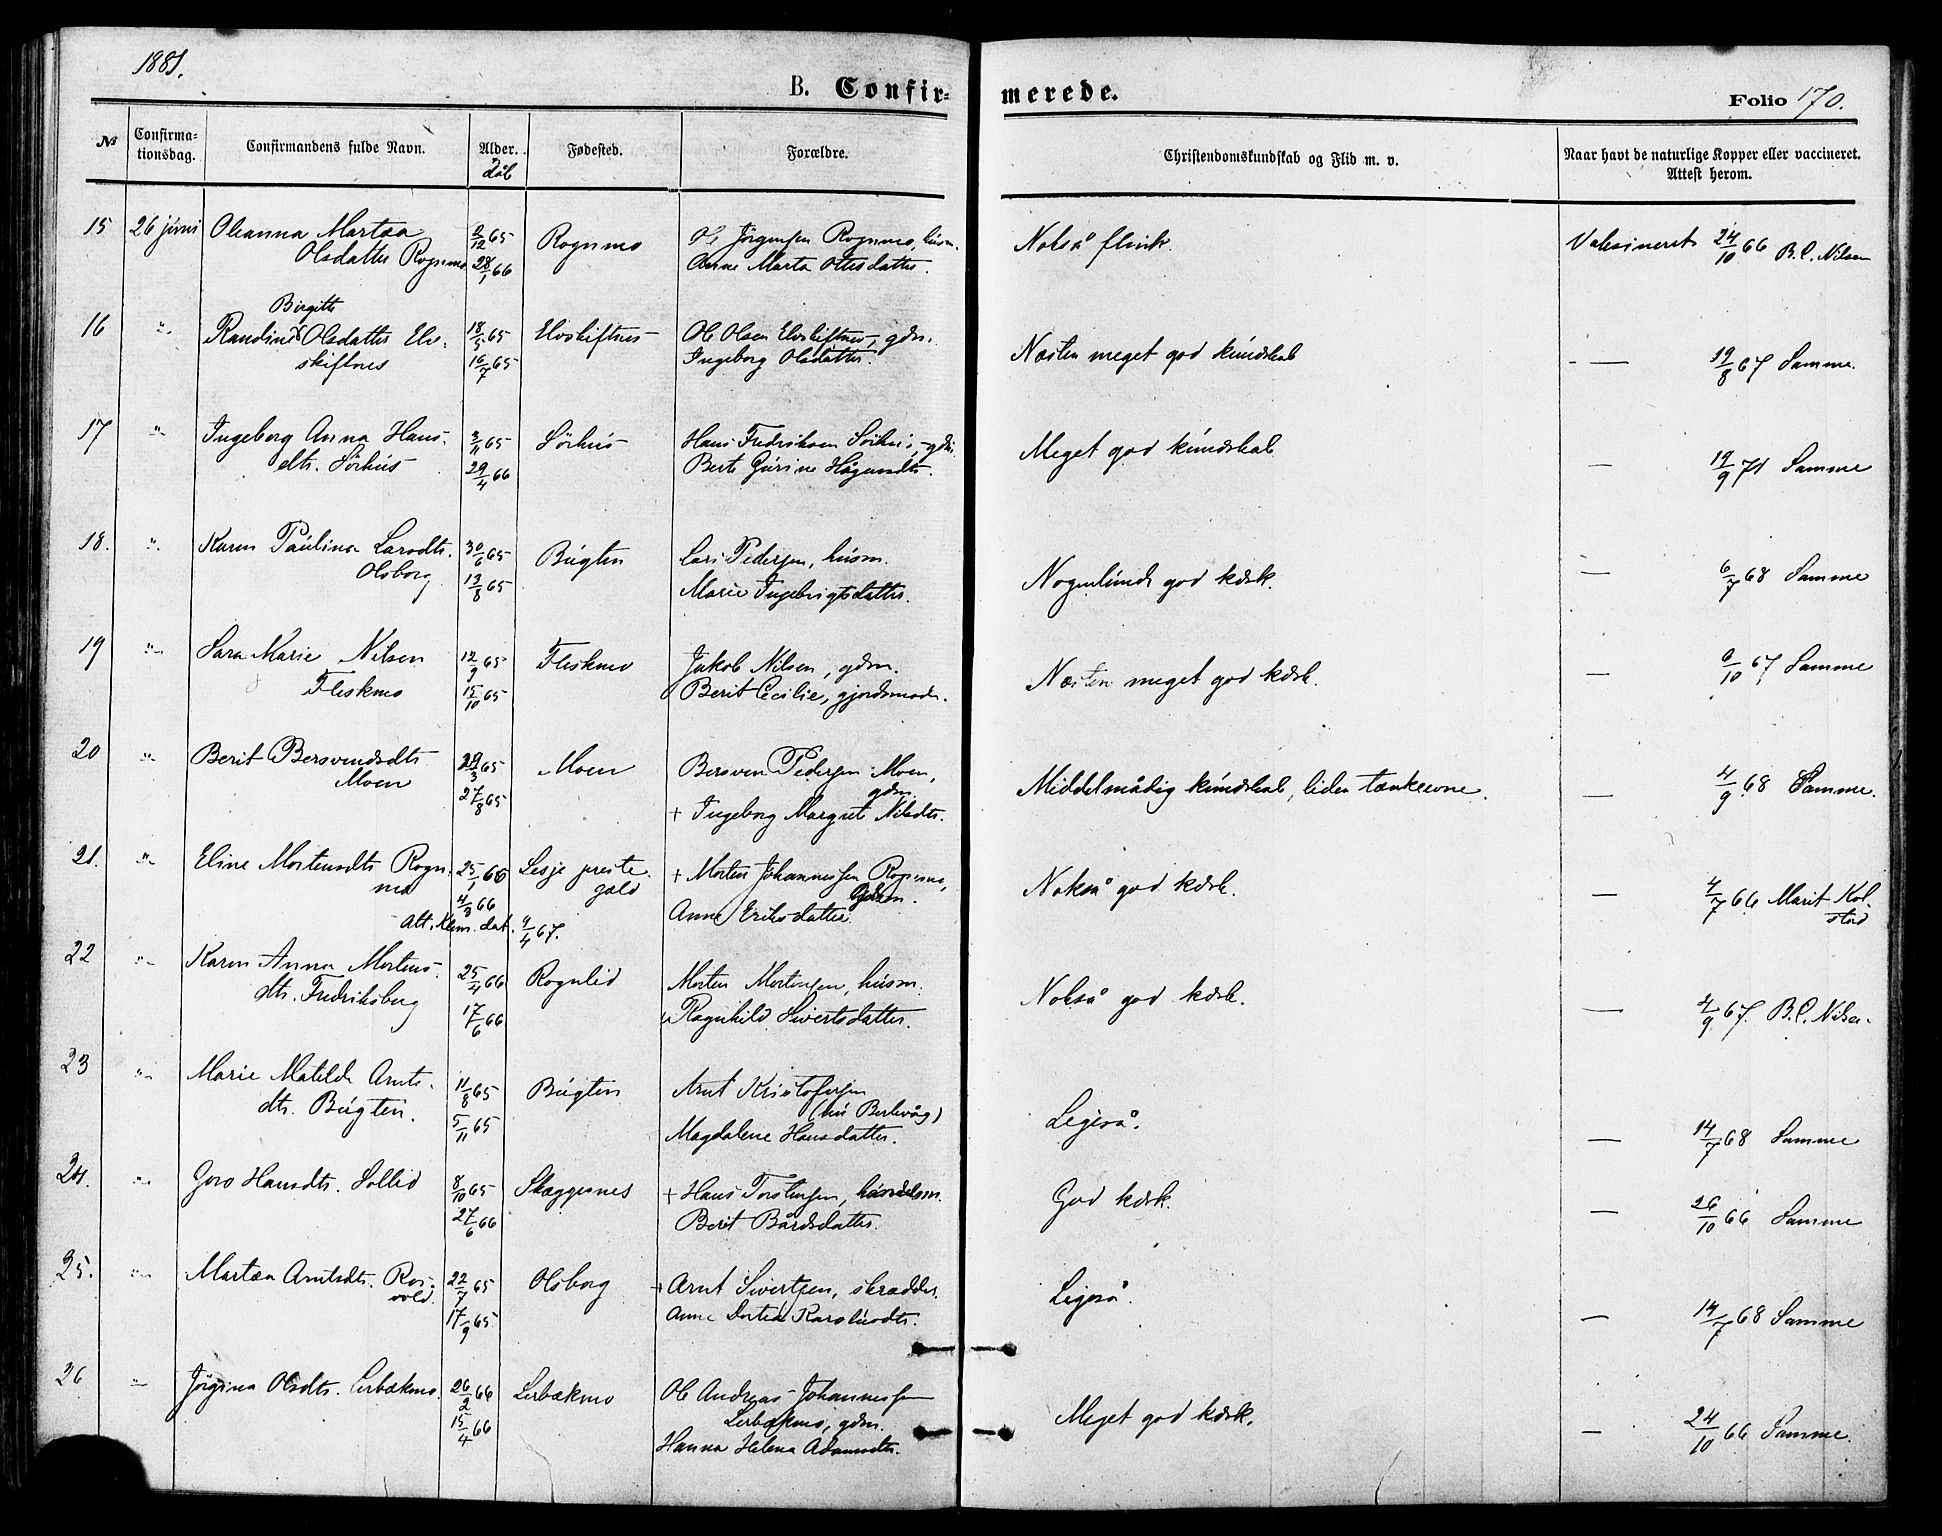 1881.
B. Confirmerede.
Folio 170.
№ Confirmationsdag. Confirmandens fulde Navn. Alder. Dåb Fødested. Forældre. Christendomskundskab og Flid m. v. Naar havt de naturlige Kopper eller vaccineret. Attest herom.
15 26 juni Oleanna Martæa 2/12 65 Rognmo Ole Jörgensen Rognmo, husm. Nokså flink. Vaksineret 24/10 66 B. C. Nilsen
Olsdatter Rognmo 28/1 66 Anne Marta Ottesdatter.
Birgitte
16 " Randine Olsdatter Elv- 18/5 65 Elvskiftnes Ole Olsen Elvskiftnes, gdm. Næsten meget god kúndskab - — 19/8 67 Samme.
skiftnes 16/7 65 Ingeborg Olsdatter.
17 " Ingeborg Anna Hans- 3/11 65 Sörhús Hans Fredriksen Sörhús, gdm. Meget god kúndskab — 19/9 71 Samme
dtr. Sörhús 29/4 66 Berte Gúrine Hågensdtr.
18. " Karen Paúlina Larsdtr. 30/6 65 Búgten Lars Pedersen, húsm. Nogenlúnde god kdsk. — 6/7 68 Samme
Olsborg 13/8 65 Marie Ingebrigtsdatter.
19 " Sara Marie Nilsen 12/9 65 Fleskmo Jakob Nilsen, gdm. Næsten meget god kdsk. — 6/10 67 Samme
Fleskmo 15/10 65 Berit Cecilie, gjordemoder.
20 " Berit Bersvendsdtr. 29/3 65 Moen Bersven Pedersen Moen, Middelmådig kúndskab, liden tænkeevne. — 4/9 68 Samme.
Moen 27/8 65 gdm.
+ Ingeborg Margrete Nilsdtr.
21. " Eline Mortensdtr. Rogn- 25/1 66 Lesje preste- + Morten Johannessen Rognmo, Nokså god kdsk. — 4/7 66 Marit Kol-
mo 4/3 66 gæld Gdm. stad
Anne Eriksdatter.
Att. Klem. dat. 4/4 67.
22 " Karen Anna Mortens- 25/4 66 Rognlid Morten Mortensen, húsm. Nokså god kdsk. — 4/9 67. B. C. Nilsen
dtr. Fredriksberg 17/6 66 Ragnhild Sivertsdatter.
23 " Marie Matilde Arnts- 11/8 65 Búgten Arnt Kristofersen Ligeså. — 14/7 68 Samme
dtr. Búgten. 5/11 65 (nú Berlevåg)
Magdalene Hansdatter.
24. " Goro Hansdtr. Sollid 8/10 65 Skæggesnes + Hans Torstensen, húsm. God kdsk. — 26/10 66 Samme
27/6 66 Berit Bårdsdatter.
25. " Martæa Arntsdtr. Ros- 22/7 65 Olsborg + Arnt Sivertsen, skrædder. Ligeså. — 14/7 68 Samme
vold. 17/9 65 Anne Dortea Karolúsdtr.
26 " Jörgina Olsdtr. Lerbækmo. 26/2 66 Lerbækmo Ole Andreas Johannessen Meget god kdsk. — 24/10 66 Samme.
15/4 66 Lerbækmo, gdm.
Hanna Helena Adamsdtr.